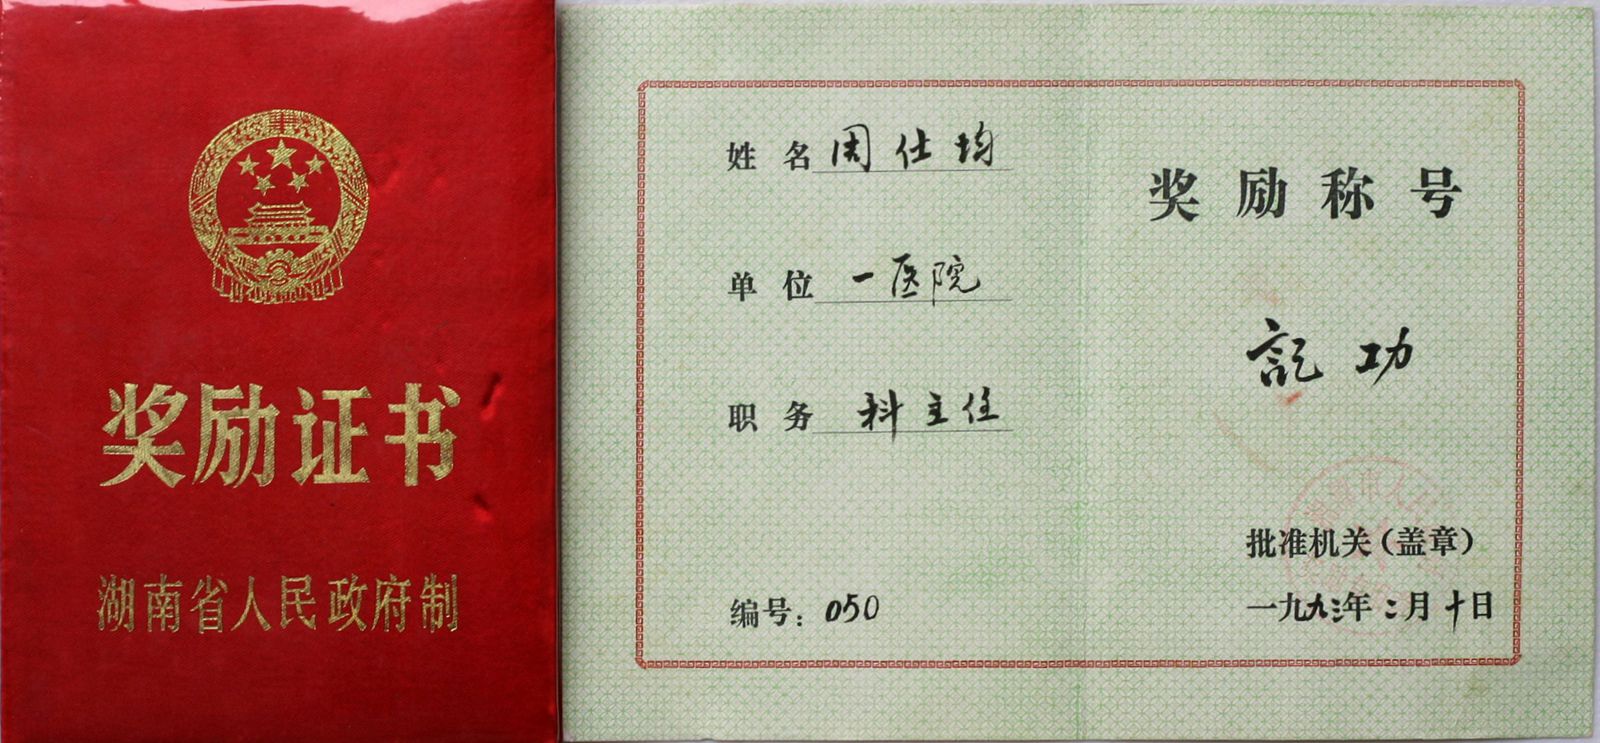 奖励证书
湖南省人民政府制
姓名 周仕均
单位 一医院
职务 科主任
编号：050
奖励称号
記功
批准机关（盖章）
一九九三年二月十日